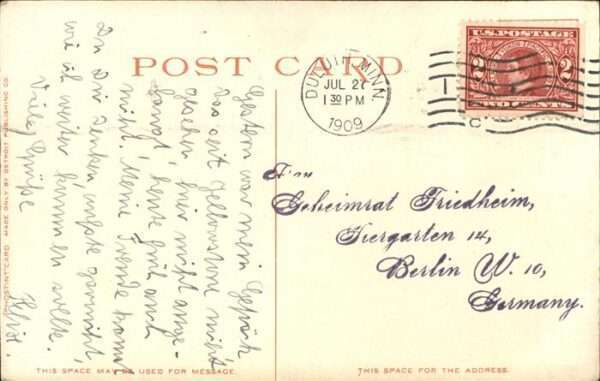 POST CARD
DULUTH, MINN.
JUL 27
1 30 PM
1909
U.S. POSTAGE
2 2
TWO CENTS
Geheimrat Friedheim,
Tiergarten 14,
Berlin W. 10,
Germany.
Gestern war mein Gepäck
das seit Yellowstone nicht
gesehen, hier nicht ange-
langt, heute früh auch
nicht. Meine Freude kannst
Du Dir denken, wüsste garnicht,
wie ich weiter kommen sollte.
Viele Grüße
"PHOSTINT" CARD MADE ONLY BY DETROIT PUBLISHING CO.
THIS SPACE MAY BE USED FOR MESSAGE.
THIS SPACE FOR THE ADDRESS.